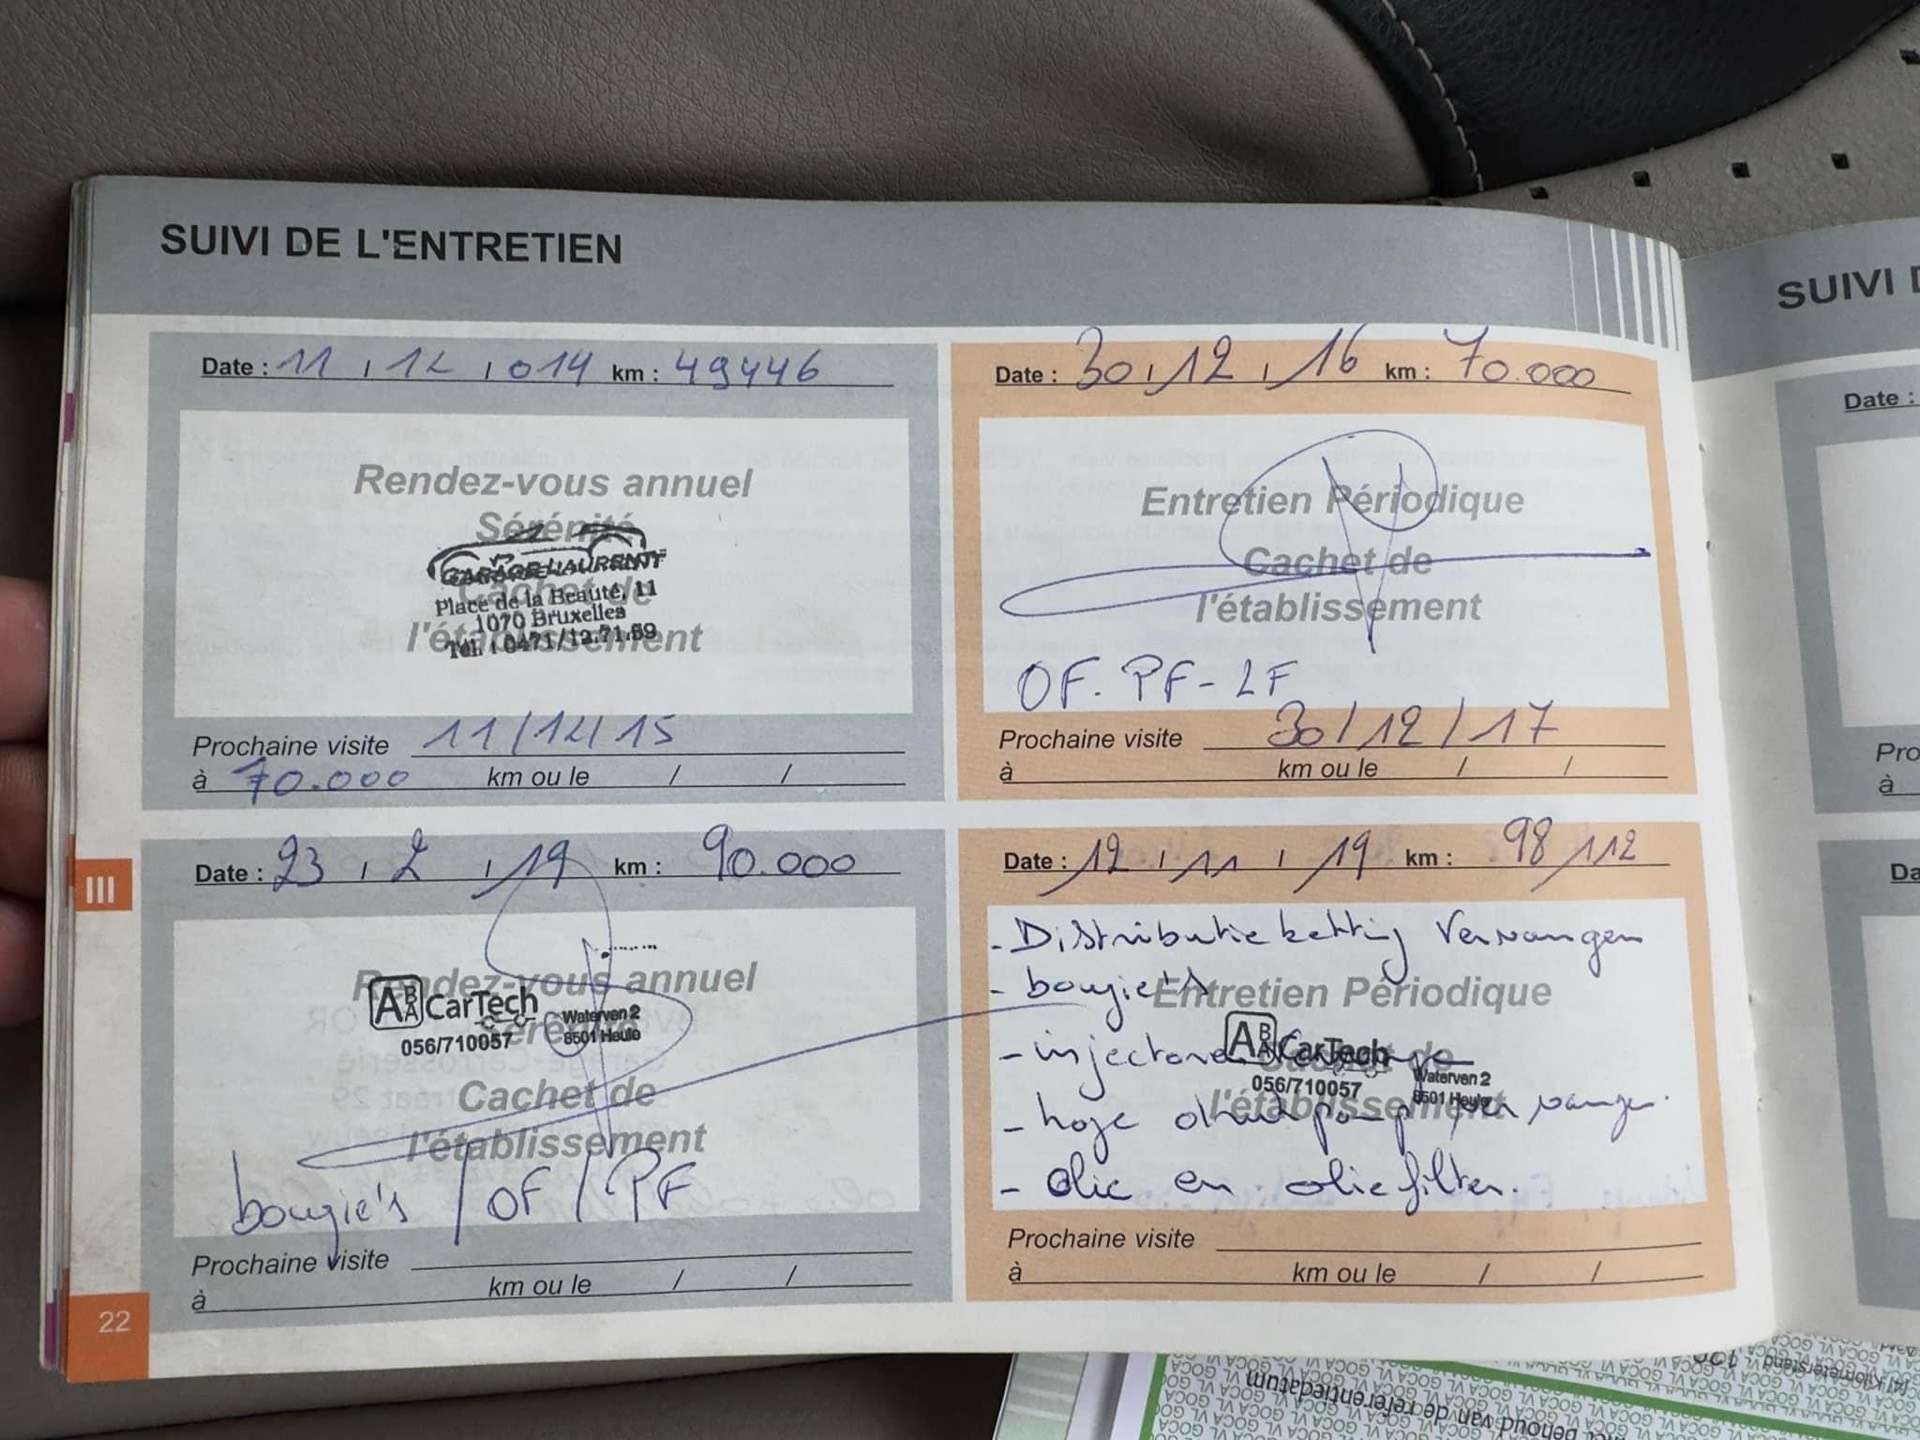 SUIVI DE L'ENTRETIEN
Date : 11 / 12 / 014 km : 49446
Rendez-vous annuel
Sérénité
GARAGE LAURENT
Place de la Beauté, 11
1070 Bruxelles
Tél. : 0471/12.71.59
Cachet de
l'établissement
Prochaine visite 11/12/15
à 70.000 km ou le / /
Date : 30 / 12 / 16 km : 70.000
Entretien Périodique
Cachet de
l'établissement
OF. PF - LF
Prochaine visite 30/12/17
à km ou le / /
Date : 23 / 2 / 19 km : 90.000
Rendez-vous annuel
Sérénité
ABBA CarTech
056/710057
Waterven 2
8501 Heule
Cachet de
l'établissement
bougie's / OF / PF
Prochaine visite
à km ou le / /
Date : 12 / 11 / 19 km : 98112
- Distributieketting Vervangen
- bougie's
Entretien Périodique
- injectoren
ABBA CarTech
056/710057
Waterven 2
8501 Heule
Cachet de
l'établissement
- hoge drukpomp vervangen.
- olie en oliefilter.
Prochaine visite
à km ou le / /
III
22
SUIVI D
Date :
Pro
à
Da
GOCA VL
Kilometerstand
behoud van de referentiedatum